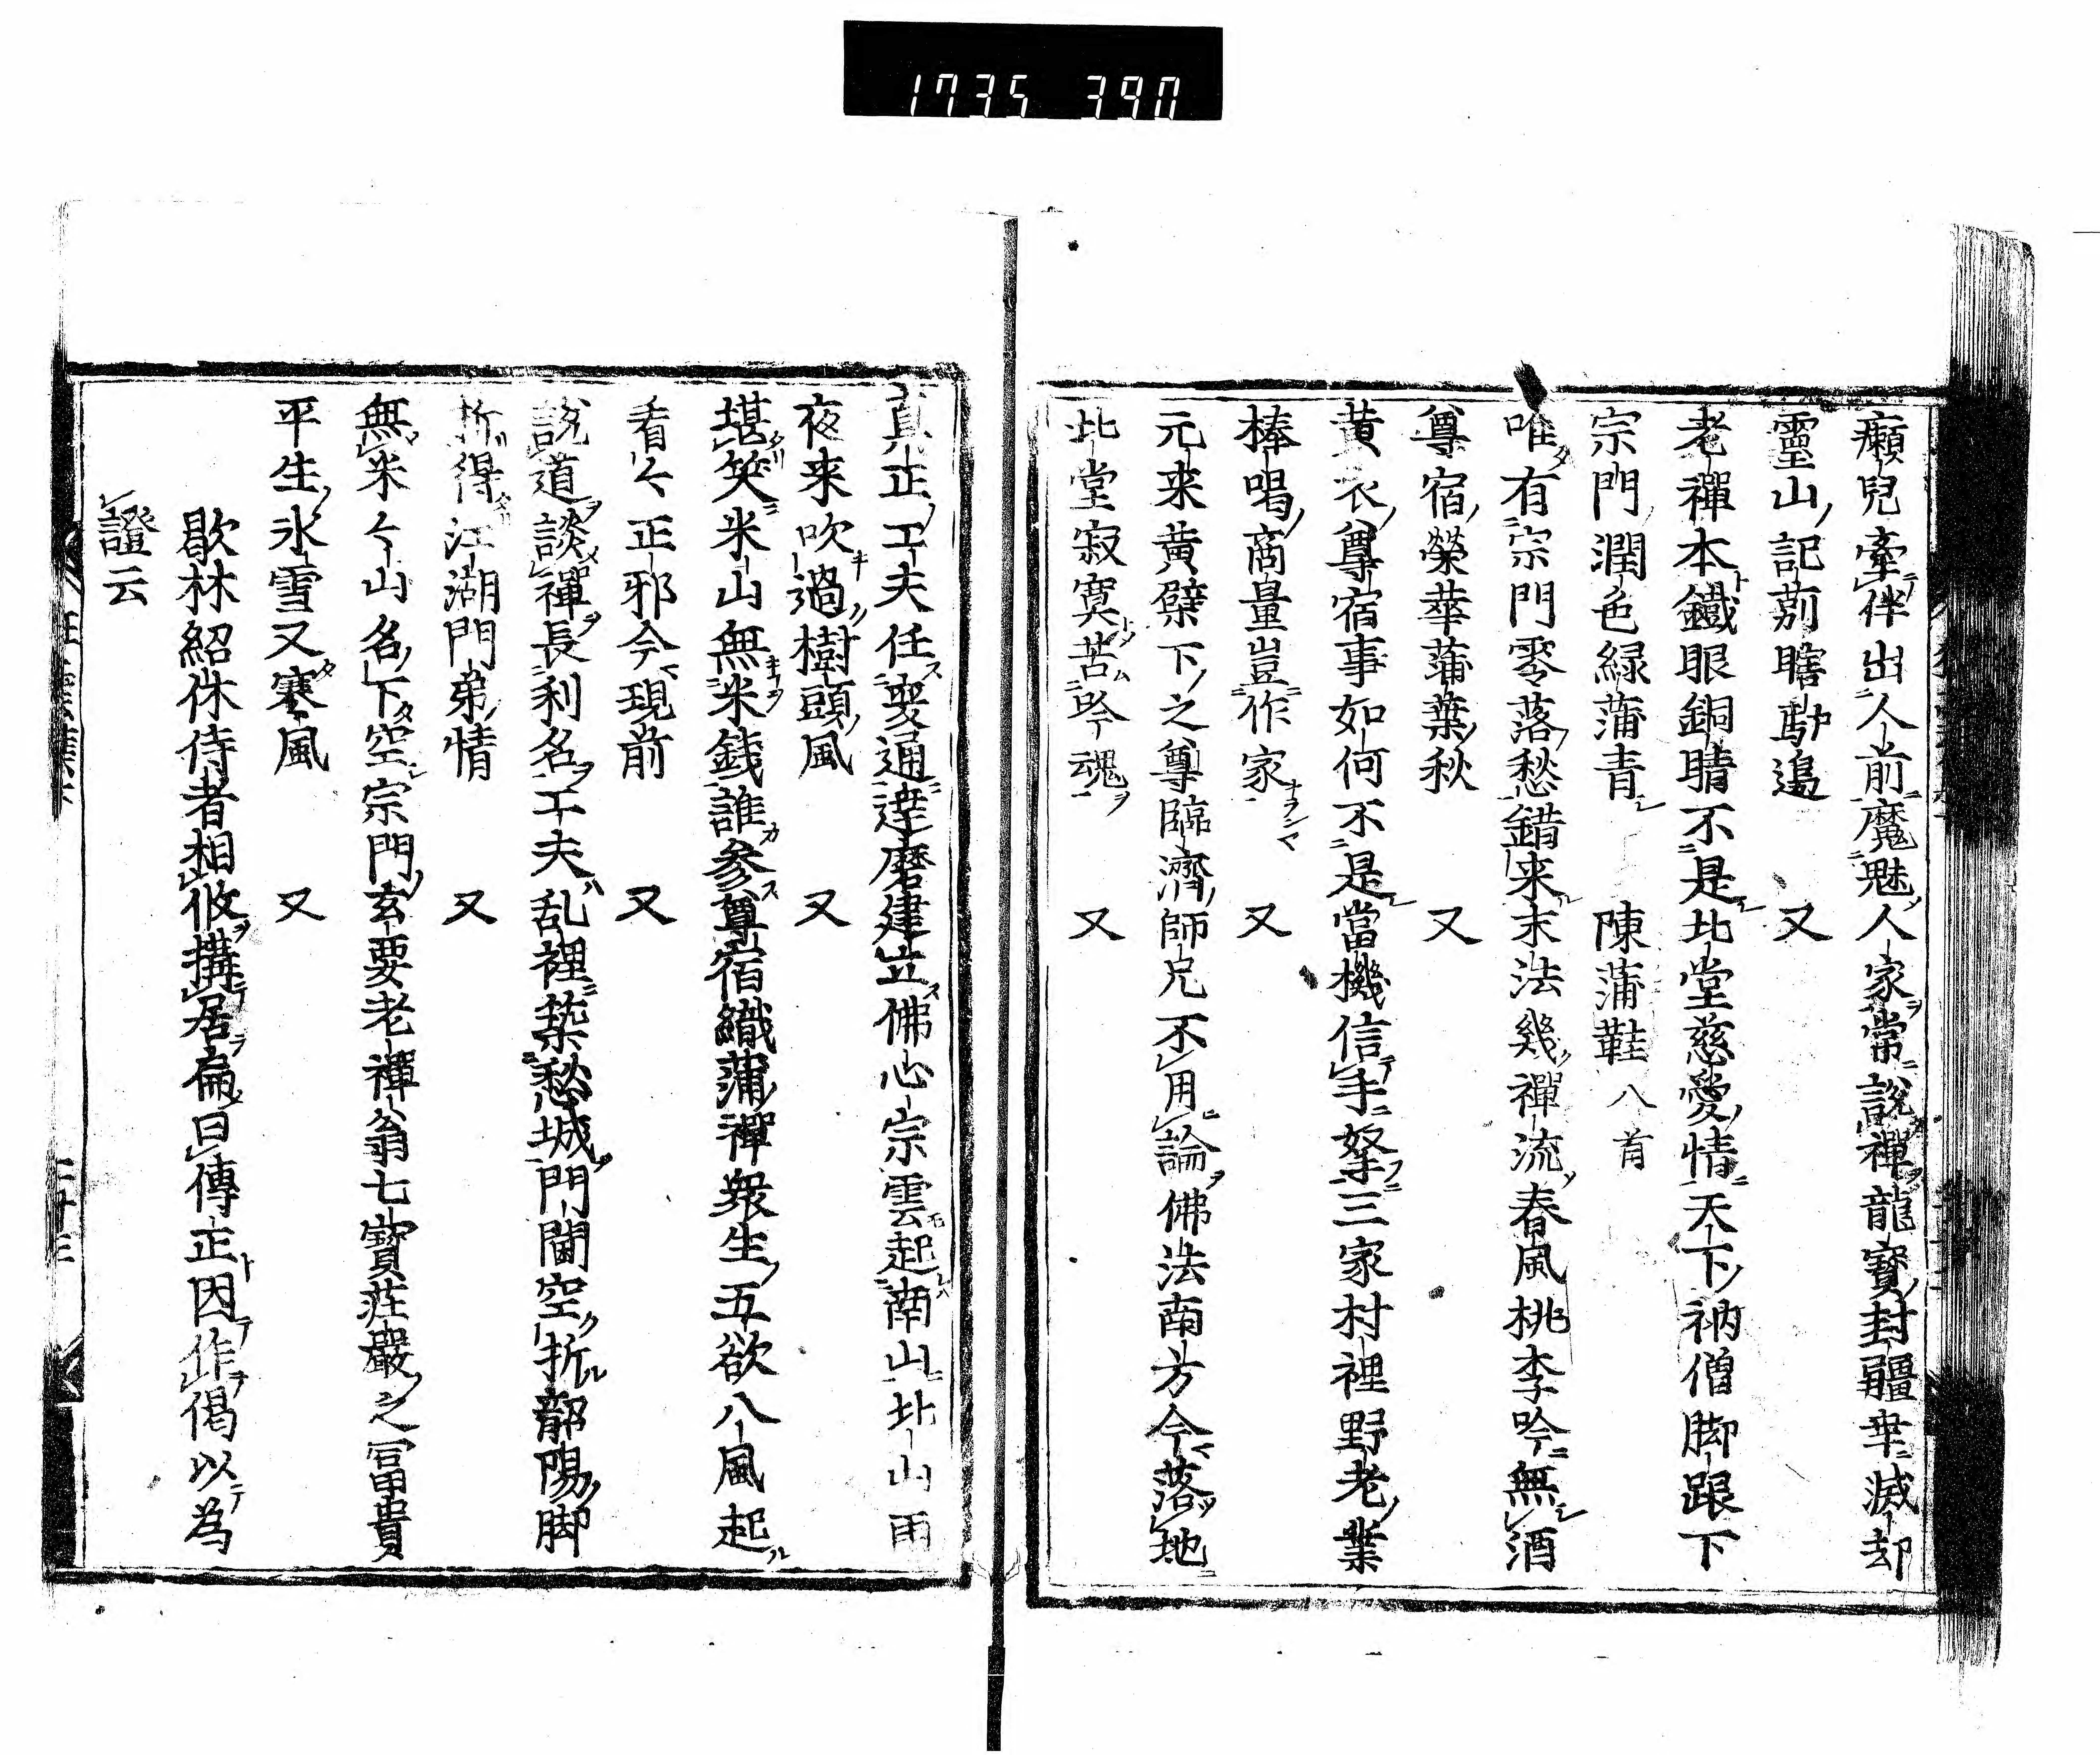 1735 390
癩兒牽伴出人前魔魅人家常說禪龍寶封疆畢滅却
靈山記莂瞎馿邉 又
老禪本鐵眼銅睛不是北堂慈愛情天下衲僧脚跟下
宗門潤色緑蒲青 陳蒲鞋八首
唯有宗門零落愁錯来末法幾禪流春風桃李吟無酒
尊宿榮華蒲葉秋 又
黄衣尊宿事如何不是當機信手拏三家村裡野老業
棒喝商量豈作家 又
元来黄檗下之尊臨濟師兄不用論佛法南方今落地
北堂寂寞苦吟魂 又
真正工夫任変通達磨建立佛心宗雲起南山北山雨
夜来吹過樹頭風 又
堪笑米山無米錢誰参尊宿織蒲禪衆生五欲八風起
看々正邪今現前 又
説道談禪長利名工夫乱裡築愁城門閫空折韶陽脚
折得江湖門弟情 又
無米々山名下空宗門玄要老禪翁七寶荘嚴之冨貴
平生氷雪又寒風 又
歇林紹休侍者相攸搆居扁曰傳正因作偈以為
證云